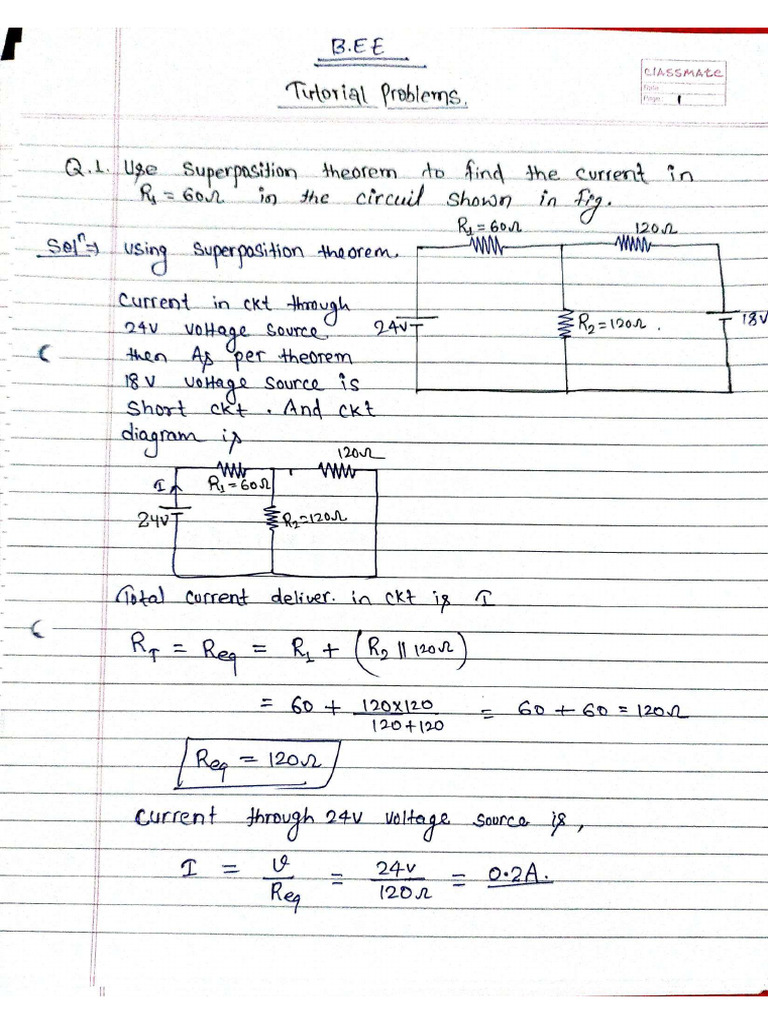 B.EE
Tutorial Problems.
CLASSMATE
Date
Page: 1
Q.1. Use Superposition theorem to find the current in
R₁ = 60Ω in the circuil shown in fig.
Solⁿ ⇒ using superposition theorem.
R₁ = 60Ω
120Ω
24V
R₂ = 120Ω.
18V
Current in ckt through
24V voltage source
then As per theorem
18 V voltage source is
Short ckt. And ckt
diagram is
120Ω
I
R₁ = 60Ω
24V
R₂ = 120Ω
Total current deliver. in ckt is I
R_T = Req = R₁ + (R₂ || 120Ω)
= 60 + 120×120 / 120+120 = 60 + 60 = 120Ω
Req = 120Ω
Current through 24V voltage source is,
I = V / Req = 24V / 120Ω = 0.2A.